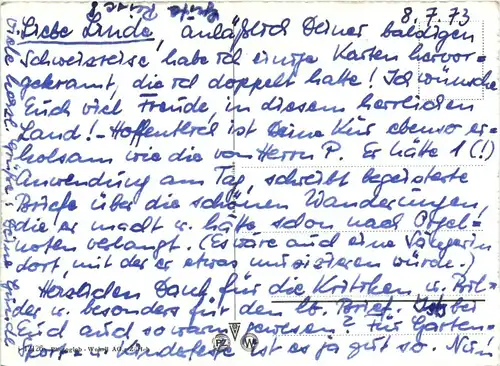 8.7.73
Liebe Linde, anläßlich Deiner baldigen
Schweizreise, habe ich einige Karten hervor-
gekramt, die ich doppelt hatte! Ich wünsche
Euch viel Freude, in diesem herrlichen
Land! - Hoffentlich ist Deine Kur ebenso er-
holsam wie die von Herrn P. Er hätte 1(!)
Anwendung am Tag, schreibt begeisterte
Briefe über die schönen Wanderungen,
die er macht u. hätte schon nach Orgel-
noten verlangt. (Es wäre auch eine Sängerin
dort, mit der er etwas musizieren würde.)
Herzlichen Dank für die Kritiken u. Bil-
der u. besonders für den lb. Brief. Ist's bei
Euch auch so warm gewesen? Für Garten-
Sport u. Kinderfeste ist es ja gut so. Nun
Viele herzl. Grüße Deine